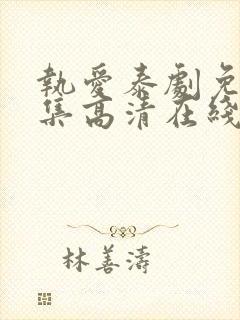 執愛泰劇免
集高清在綫
林善濤